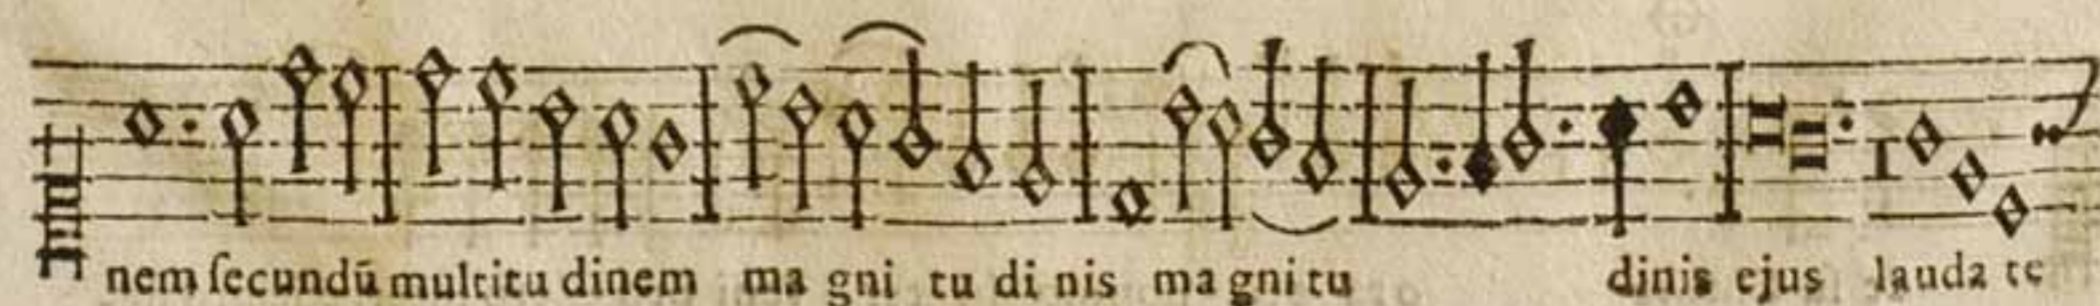 nem ſecundū multitu dinem ma gni tu di nis ma gni tu dinis ejus lauda te